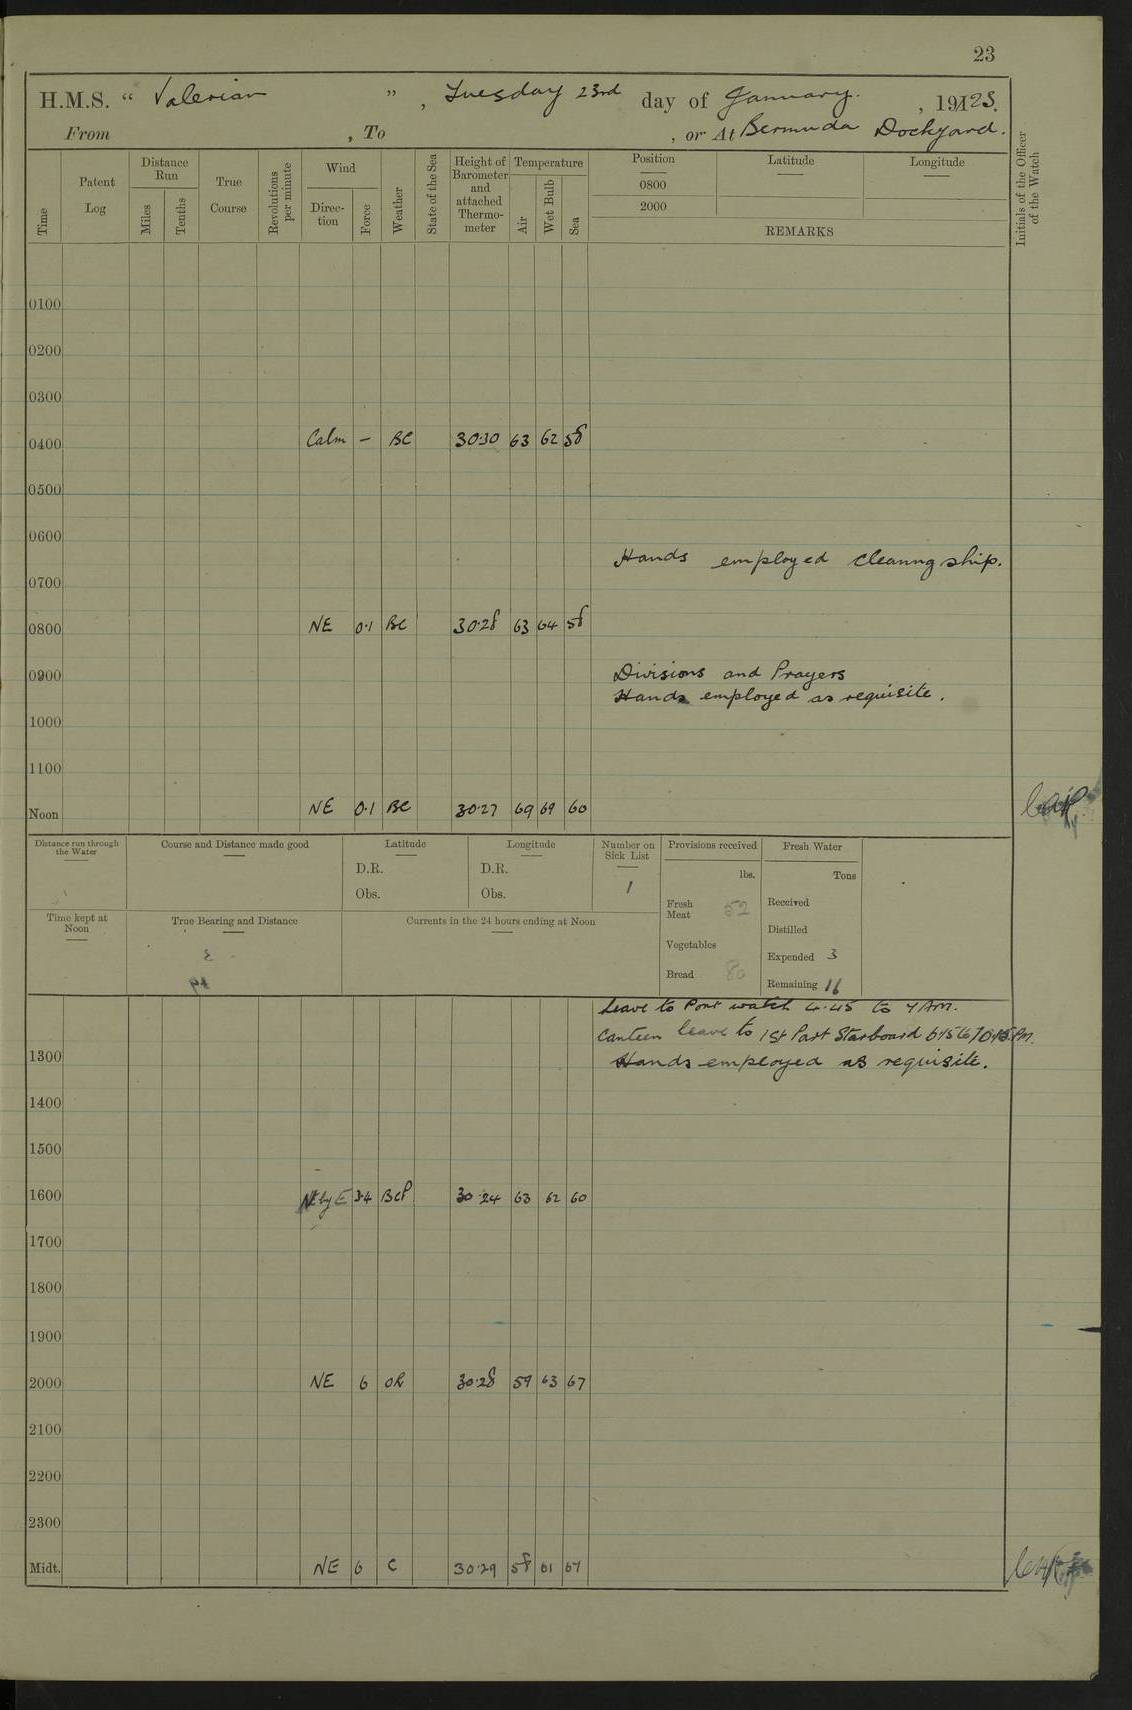 23
H.M.S. " Valerian ", Tuesday 23rd day of January. , 1923.
From , To , or At Bermuda Dockyard.
Time
Patent Log
Distance Run
Miles
Tenths
True Course
Revolutions per minute
Wind
Direction
Force
Weather
State of the Sea
Height of Barometer and attached Thermometer
Temperature
Air
Wet Bulb
Sea
Position
0800
2000
Latitude
Longitude
REMARKS
Initials of the Officer of the Watch
0100
0200
0300
0400 Calm – BC 30.30 63 62 58
0500
0600
Hands employed cleaning ship.
0700
0800 NE 0.1 BC 30.28 63 64 58
0900 Divisions and Prayers
Hands employed as requisite.
1000
1100
Noon NE 0.1 BC 30.27 69 69 60
Distance run through the Water
Course and Distance made good
Latitude
D.R.
Obs.
Longitude
D.R.
Obs.
Number on Sick List
1
Provisions received
lbs.
Fresh Meat 52
Vegetables
Bread 80
Fresh Water
Tons
Received
Distilled
Expended 3
Remaining 16
Time kept at Noon
True Bearing and Distance
Currents in the 24 hours ending at Noon
Leave to Port watch 4.45 to 7 AM.
Canteen leave to 1st Part Starboard
1300 Hands employed as requisite.
1400
1500
1600 by E 3.4 BCP 30.24 63 62 60
1700
1800
1900
2000 NE 6 OR 30.28 59 63 67
2100
2200
2300
Midt. NE 6 C 30.29 58 61 67